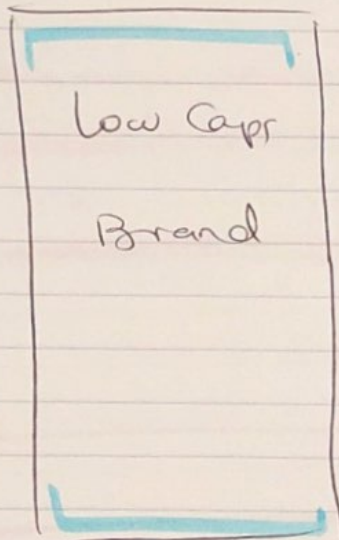 Low Caps
Brand